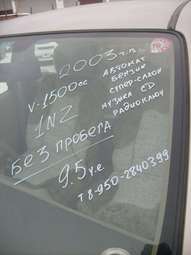 2003 г.в.
V-1500cc
1NZ
БЕЗ ПРОБЕГА
9.5 у.е
АВТОМАТ
БЕНЗИН
СУПЕР-САЛОН
МУЗЫКА CD
РАДИОКЛЮЧ
Т 8-950-2840399